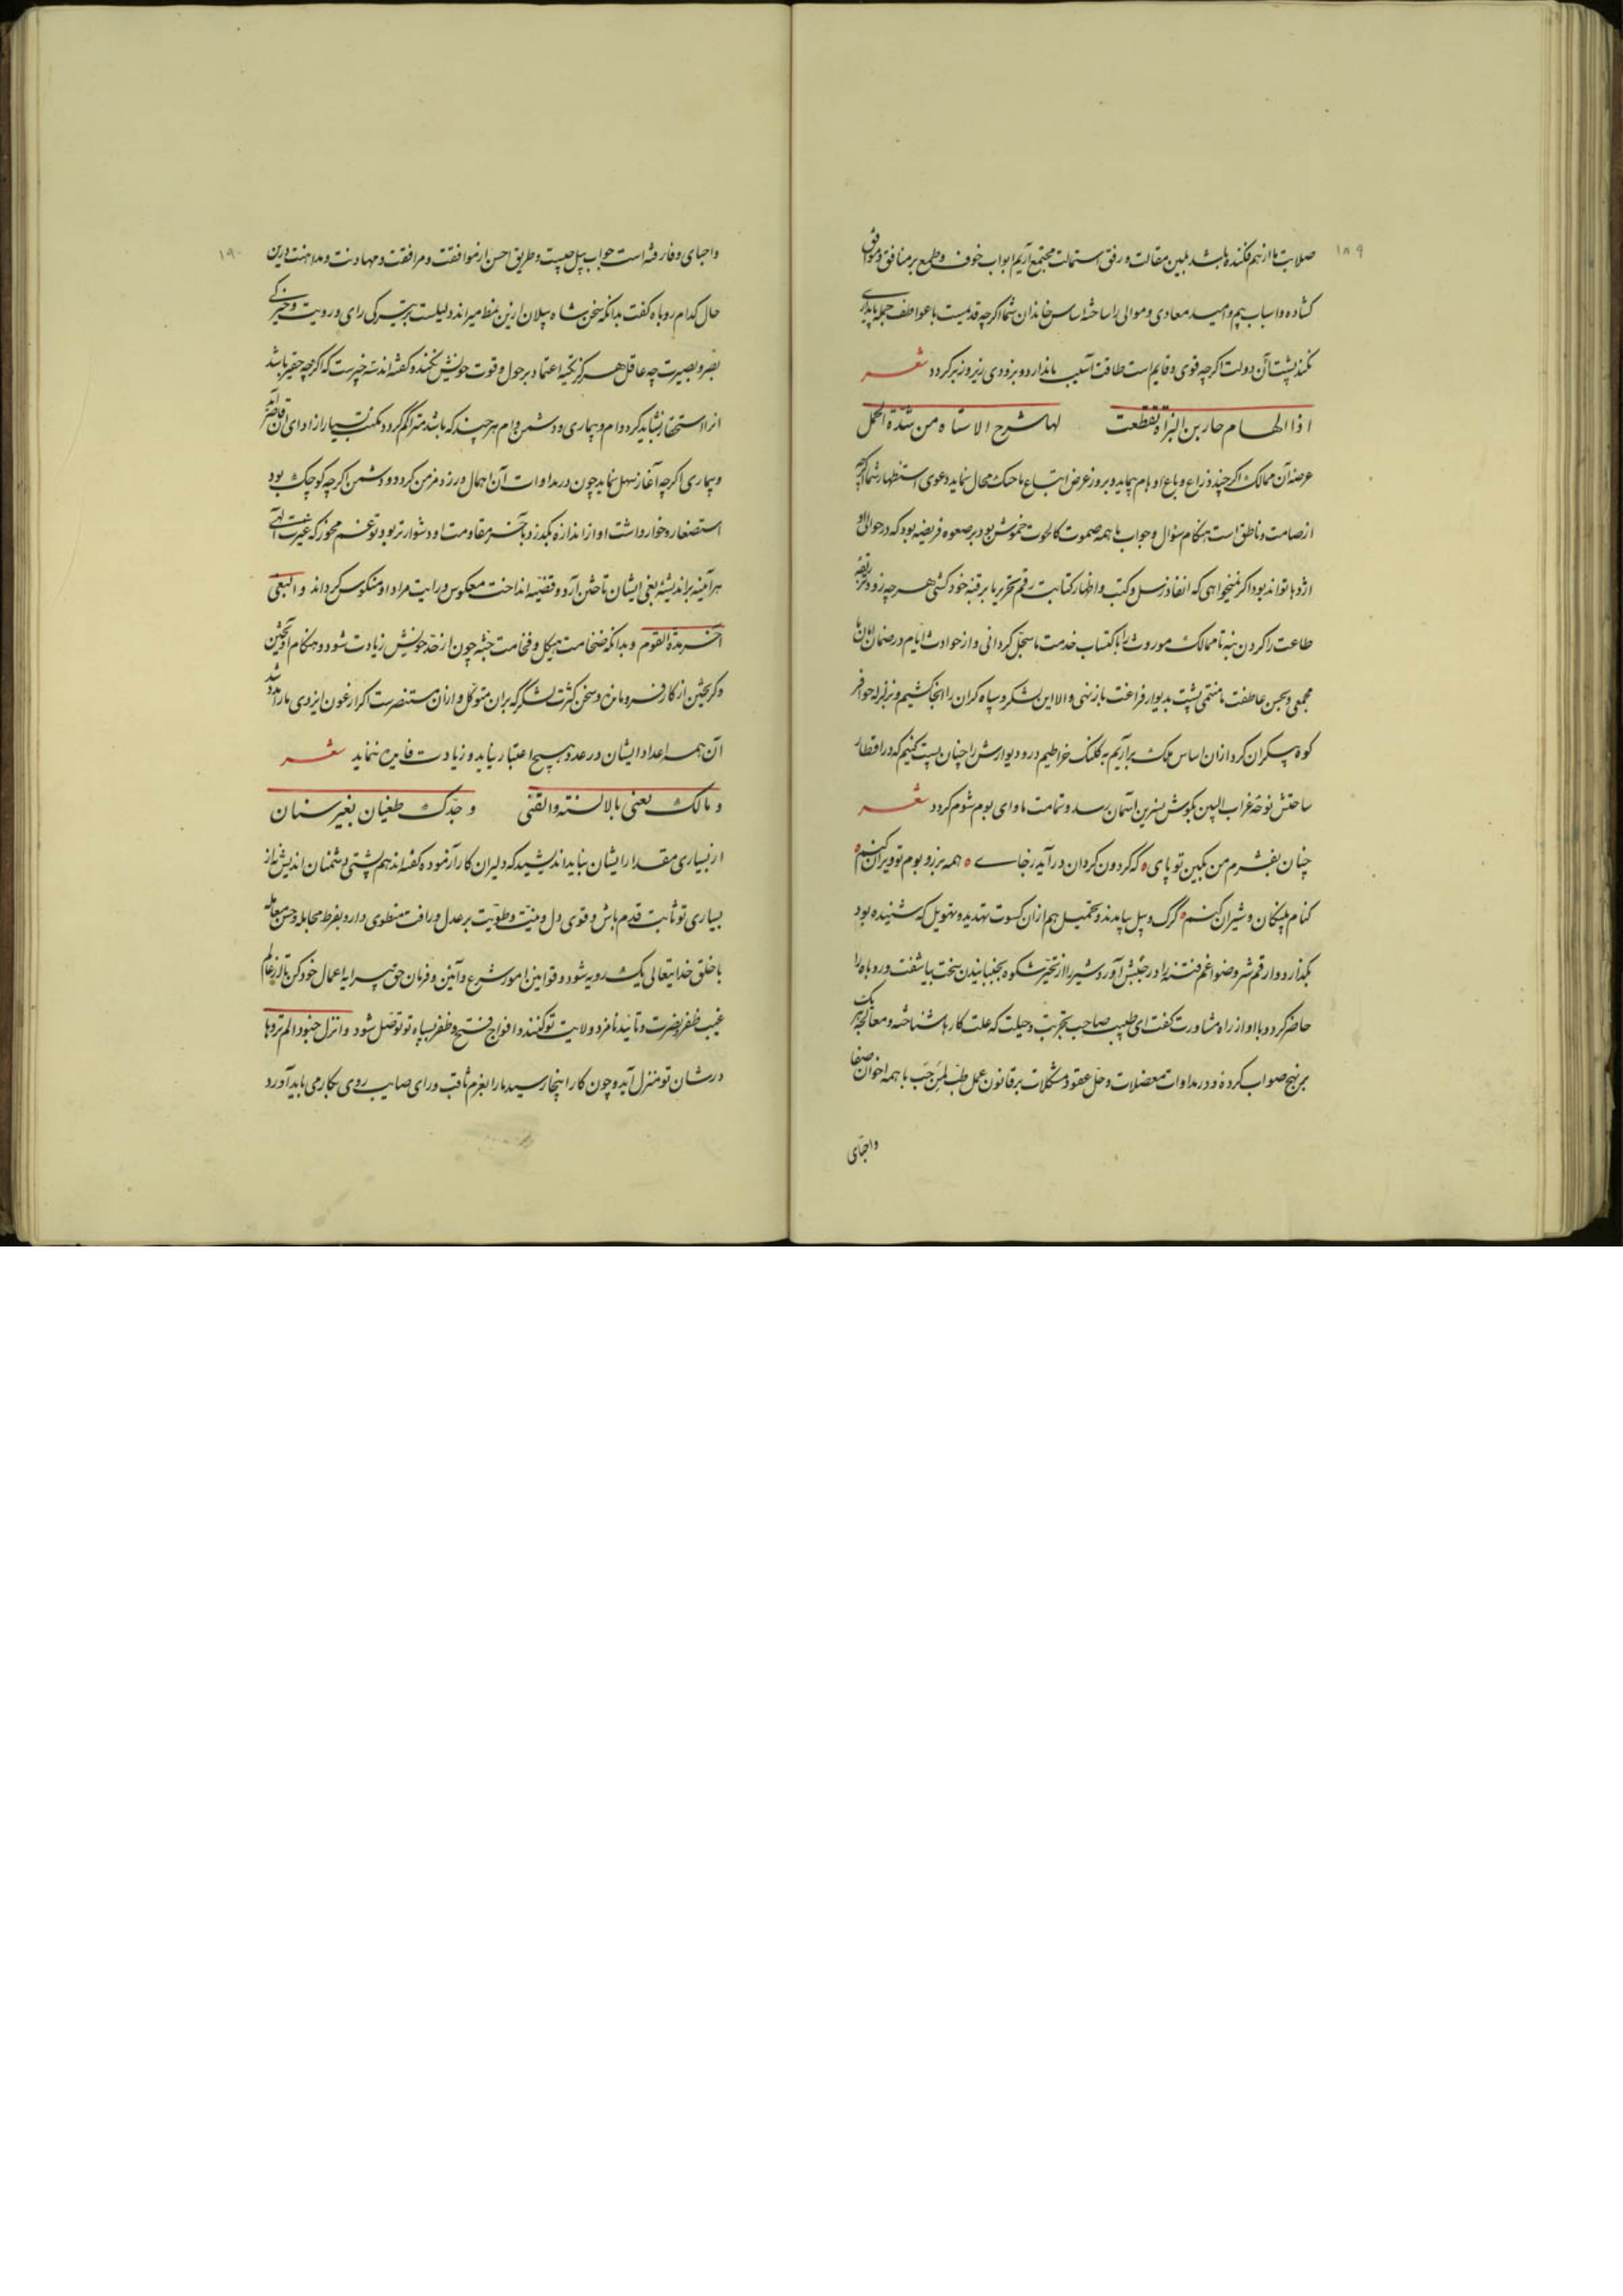 ۱۸۹
صلابت ما از هم فکنده باشد بلین مقالت و رفق استمالت مجتمع آریم ابواب خوف و طمع بر منافق و موافق
کشاده و اسباب بیم و امید معادی و موالی را ساخته اساس خاندان شما اکرچه قدیمست با عواطف حمله پایداری
نکند پشت آن دولت اکرچه قوی و قایم است طاقت آسیب ما ندارد و بزودی زیر و زبر کردد شعر
اذا الهام حاربن البزاة تقطعت لها شرح الاستاه من شدة الحمل
عرضه آن ممالک اکرچند ذراع و باع اوهام پیماید و بروز عرض اتباع ما حک محال نماید دعوی استظهار شما اکرچه
از صامت و ناطق است هنکام سؤال و جواب ما همه صموت کالحوت خموش بود بر صعوه فریضه بود که در حوالی او
اژدها تواند بود اکر نمیخواهی که انفاذ رسل و کتب و اظهار کتابت رقم تحریر ما بر قبه خود کشی هر چه زودتر ربقه
طاعت را کردن بنه تا ممالک موروث را باکتساب خدمت ما مسجل کردانی و از حوادث ایام در ضمان امان ما
محمی و بحسن عاطفت ما منتمی پشت بدیوار فراغت باز نهی و الا این لشکر و سپاه کران را آنجا کشیم و بزلزله حوافر
کوه پیکران کرد از آن اساس ملک برآریم به کلنک خراطیم در و دیوارش را چنان پست کنیم که در اقطار
ساحتش نوحه غراب البین بکوش نسرین آسمان رسد و شمامت ماوای بوم شوم کردد شعر
چنان بفشرم من بکین تو پای که کردون کردان درآید زجای همه مرز و بوم تو ویران کنم
کنام پلنکان و شیران کنم کرک و پیل بیامدند و تحمیل هم از آن کسوت تهدید و تهویل که شنیده بود
بکذارد و ارقم شر و ضواغم فتنه را در جنبش آورد شیر را از تحیر شکوه بجنبانیدن سخت بیاشفت و روباه را
حاضر کرد و با او از راه مشاورت کفت ای طبیب صاحب تجربت و حیلت که علت کارها شناخته و معالجه هر یک
بر نهج صواب کرده و در مداوات معضلات و حل عقود مشکلات بر قانون عمل طب لمن حب با همه اخوان صفا
واحبای
۱۹۰
واحبای وفا رفته است جواب پیل چیست و طریق احسن از موافقت و مرافقت و مهادنت و مداهنت درین
حال کدام روباه کفت بدانکه سخن شاه پیلان ازین نمط میراند دلیلست بر تیرکی رای و رویت و خیرکی
بصر و بصیرت چه عاقل هرکز تکیه اعتماد بر حول و قوت خویش نکند و کفته‌اند سه چیزست که اکرچه حقیر باشد
انرا استحقار نشاید کرد وام و بیماری و دشمن وام هر چند که باشد متراکم کردد مکنت بسیار از ادای آن قاصر آید
و بیماری اکرچه آغاز سهل نماید چون در مداوات آن اهمال رود مزمن کردد و دشمن اکرچه کوچک بود
استصغار و خوار داشت او از اندازه بکذرد بآخر مقاومت او دشوارتر بود تو غم مخور که غیرت الهی
هر آینه بر اندیشه بغی ایشان تاختن آرد و قضیه انداخت معکوس و رایت مراد او منکوس کرداند و البغی
آخر مدة القوم و بدانکه ضخامت هیکل و فخامت جثه چون از حد خویش زیادت شود و هنکام آویختن
و کریختن از کار فرو ماند و سخن کثرت لشکر که بران متوکل و ازان مستنصرست اکر از عون ایزدی ما را مدد رسد
آن همه اعداد ایشان در عدد هیچ اعتبار نیاید و زیادت فایده ننماید شعر
و مالک یعنی بالاسنة والقنی و جدک طغیان بغیر سنان
از بسیاری مقدار ایشان نباید اندیشید که دلیران کار آزموده کفته‌اند هم پشتی دشمنان اندیش نه از
بسیاری تو ثابت قدم باش و قوی دل و منیت و طویت بر عدل و رافت منطوی دار و بفرط مجامله و حسن معامله
با خلق خدایتعالی یک رویه شو و قوانین امور شرع و آیین و فرمان حق پیرایه اعمال خود کن تا از عالم
غیب ظفر و نصرت و تایید نامزد ولایت تو کنند و افواج فتح و ظفر بسپاه تو متصل شود وانزل جنودا لم تروها
درشان تو منزل آید و چون کار اینجا رسید ما را بعزم ثاقب و رای صایب روی بکار می باید آورد